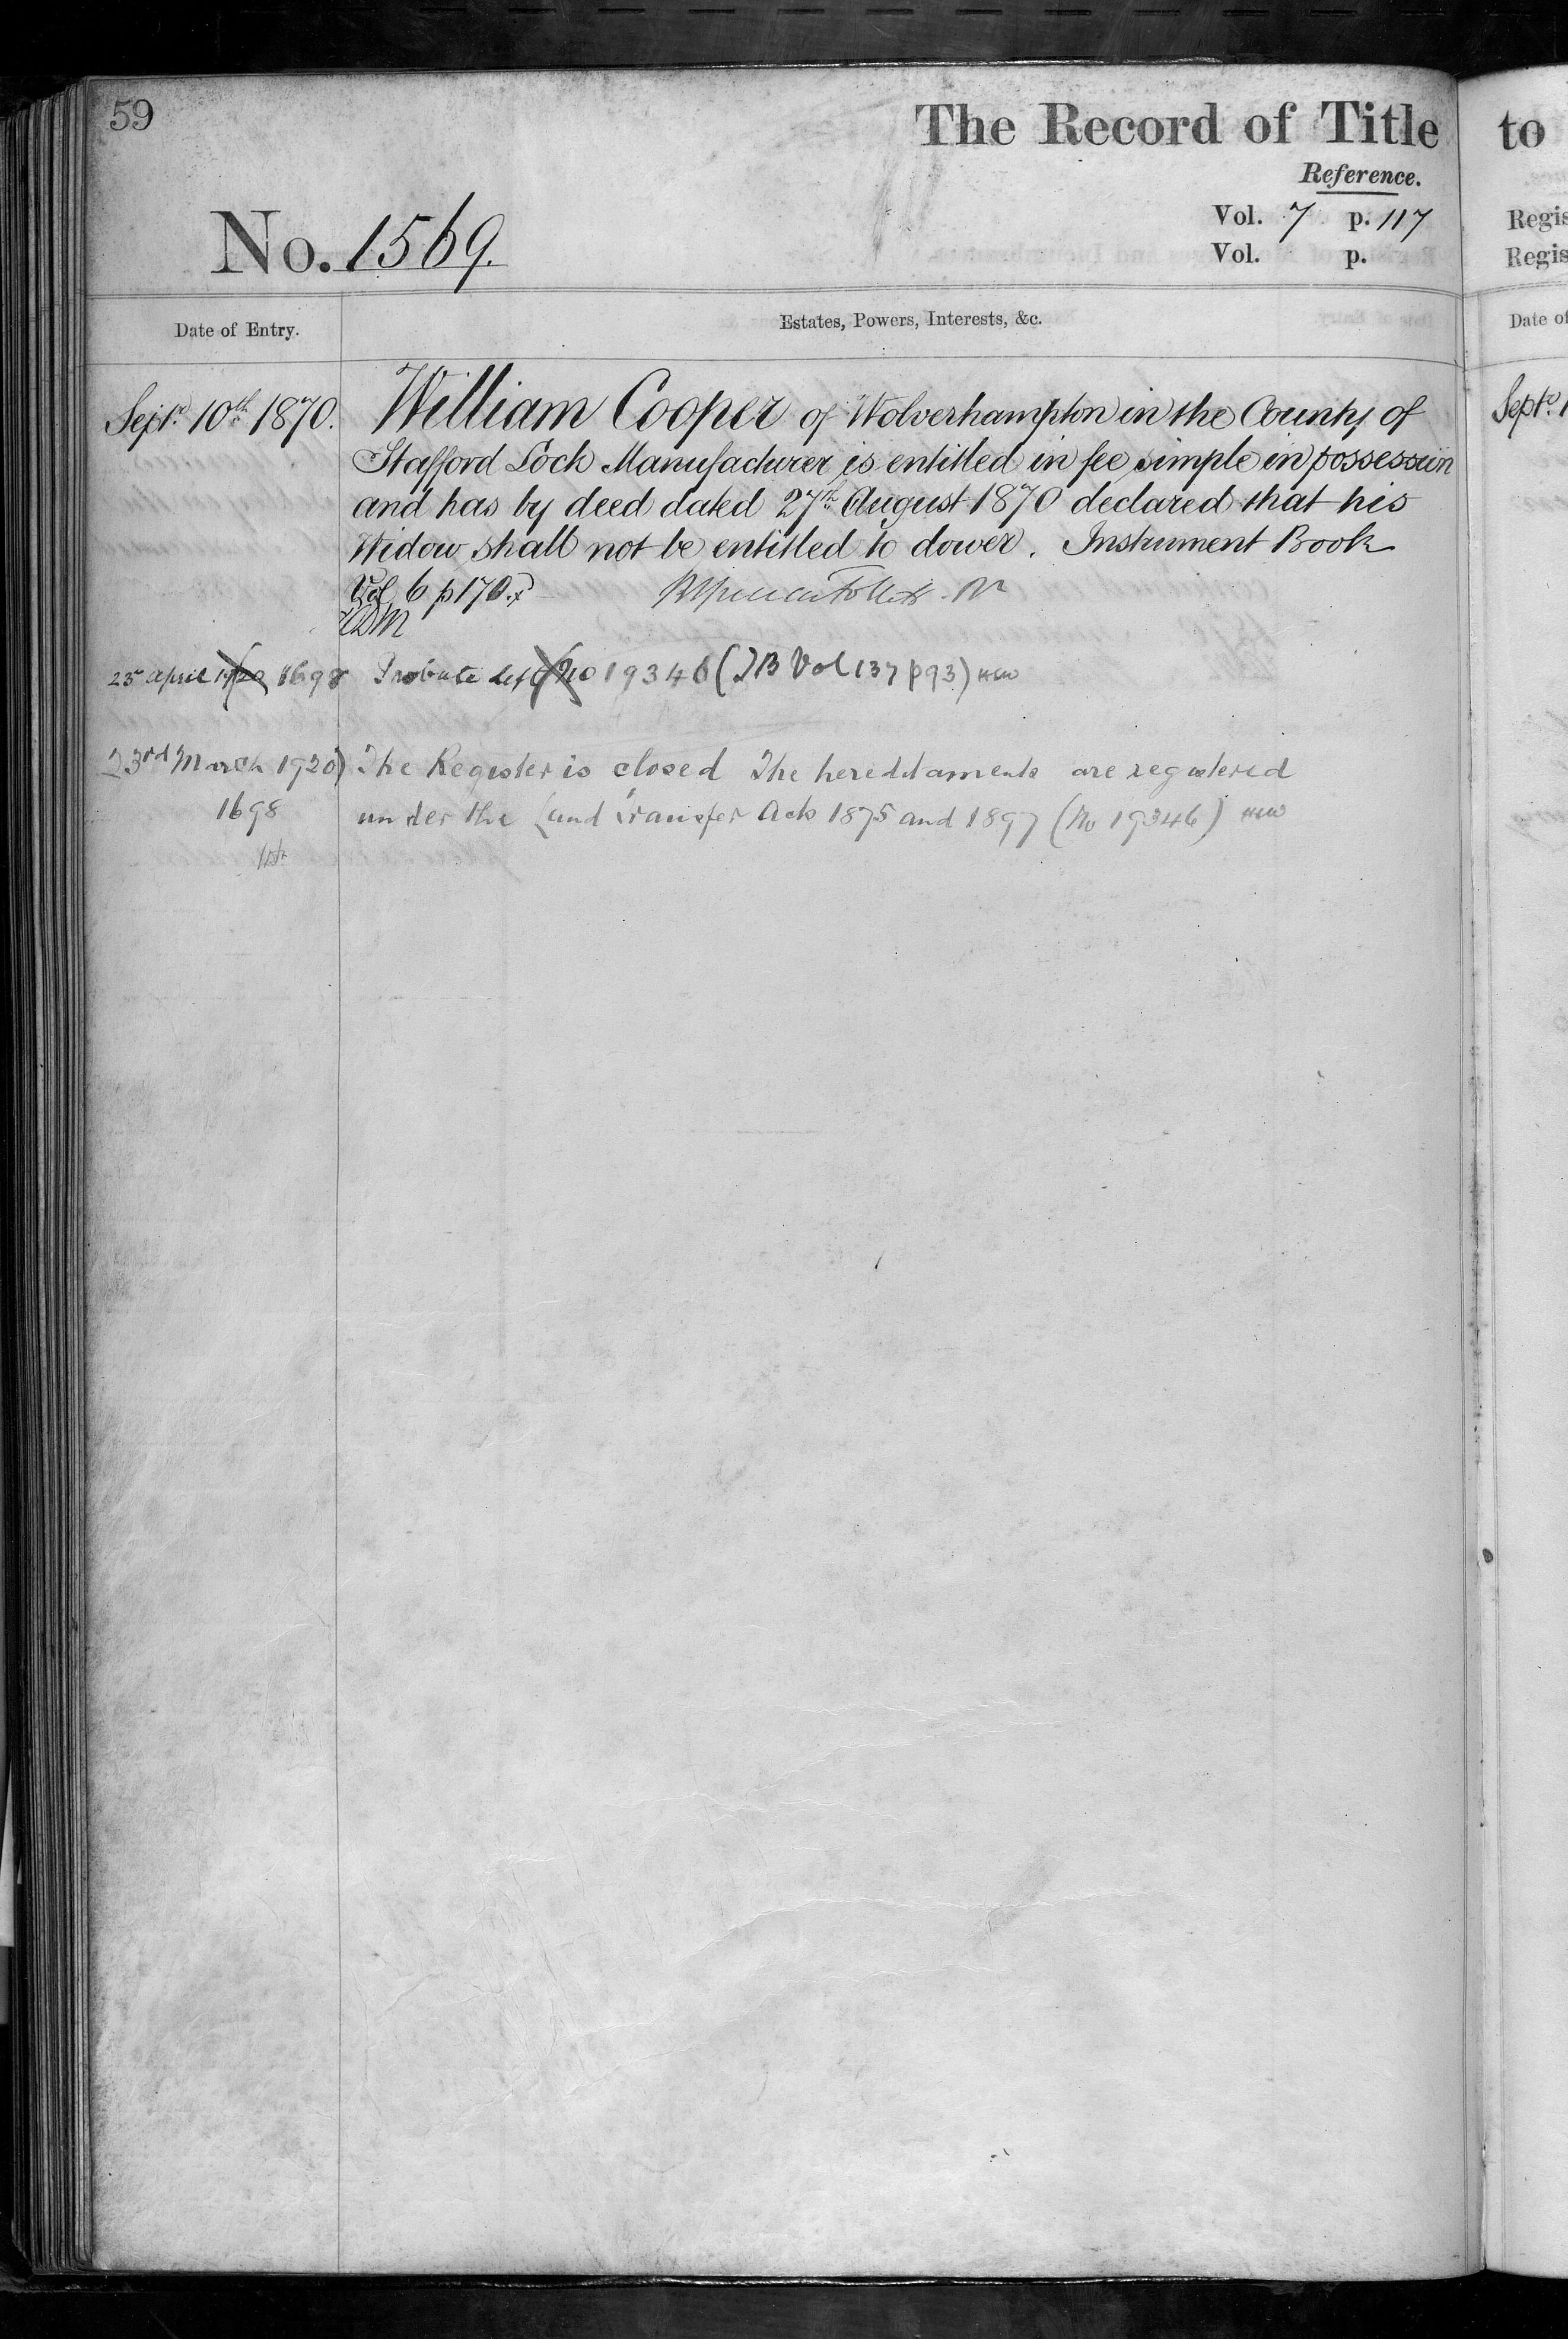 59
The Record of Title
to
Reference.
No. 1569.
Vol. 7 p. 117
Regis
Vol. p.
Regis
Date of Entry.
Estates, Powers, Interests, &c.
Date of
Septr. 10th 1870.
William Cooper of Wolverhampton in the County of
Stafford Lock Manufacturer is entitled in fee simple in possession
and has by deed dated 27th August 1870 declared that his
Widow shall not be entitled to dower. Instrument Book
Vol 6 p 170.
23rd April 1920 1698 Probate No 19346 (IB Vol 137 p 93)
23rd March 1920) The Register is closed The hereditaments are registered
1698 under the Land Transfer Acts 1875 and 1897 (No 19346)